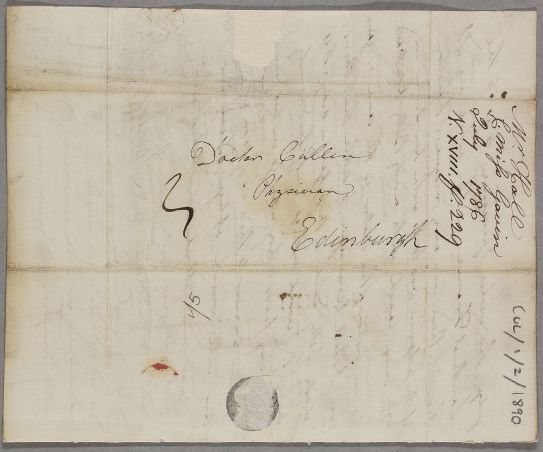 Doctor Cullen
Physician
Edinburgh
Mr Hall
Miss Gavin
July 1786
N. XVIII. ff. 229
CUL/1/2/1890